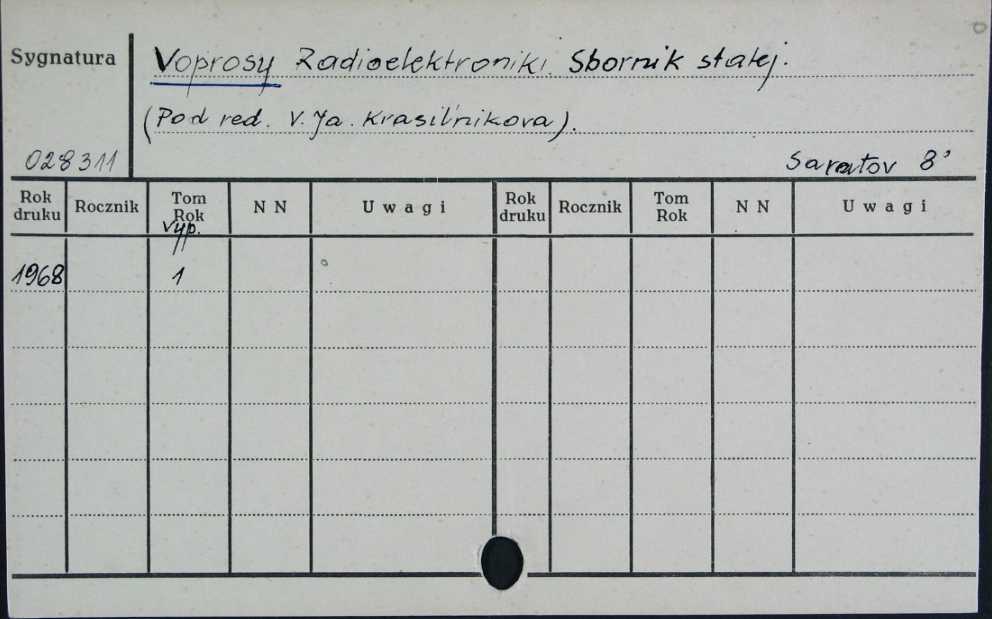 Sygnatura
Voprosy Radioelektroniki. Sbornik statej.
(Pod red. V. Ja. Krasil'nikova).
028311
Saratov 8°
Rok druku Rocznik Tom Rok N N Uwagi Rok druku Rocznik Tom Rok N N Uwagi
Vyp.
1968 1